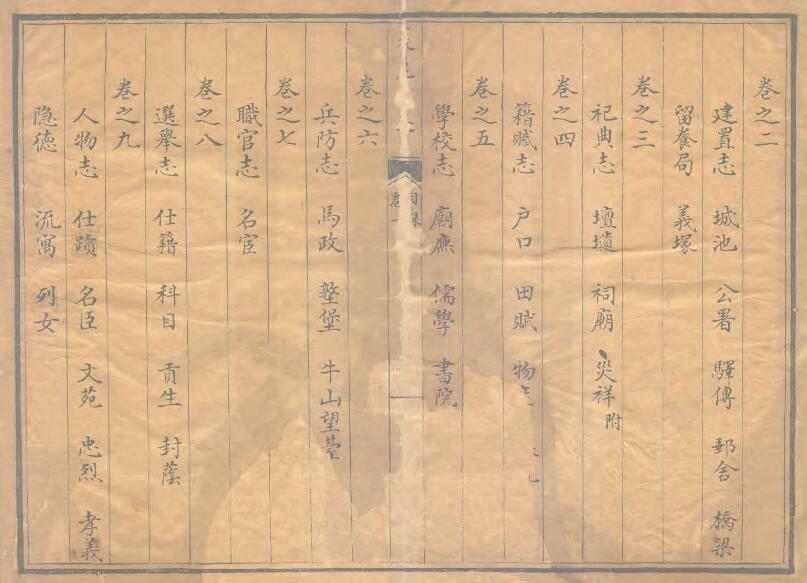 卷之二
建置志 城池 公署 驛傳 郵舍 橋梁
留養局 義塚
卷之三
祀典志 壇壝 祠廟 災祥附
卷之四
籍賦志 戶口 田賦 物
卷之五
學校志 廟廡 儒學 書院
目録
卷一
卷之六
兵防志 馬政 墪堡 牛山望臺
卷之七
職官志 名宦
卷之八
選舉志 仕籍 科目 貢生 封蔭
卷之九
人物志 仕蹟 名臣 文苑 忠烈 孝義
隐德 流寓 列女